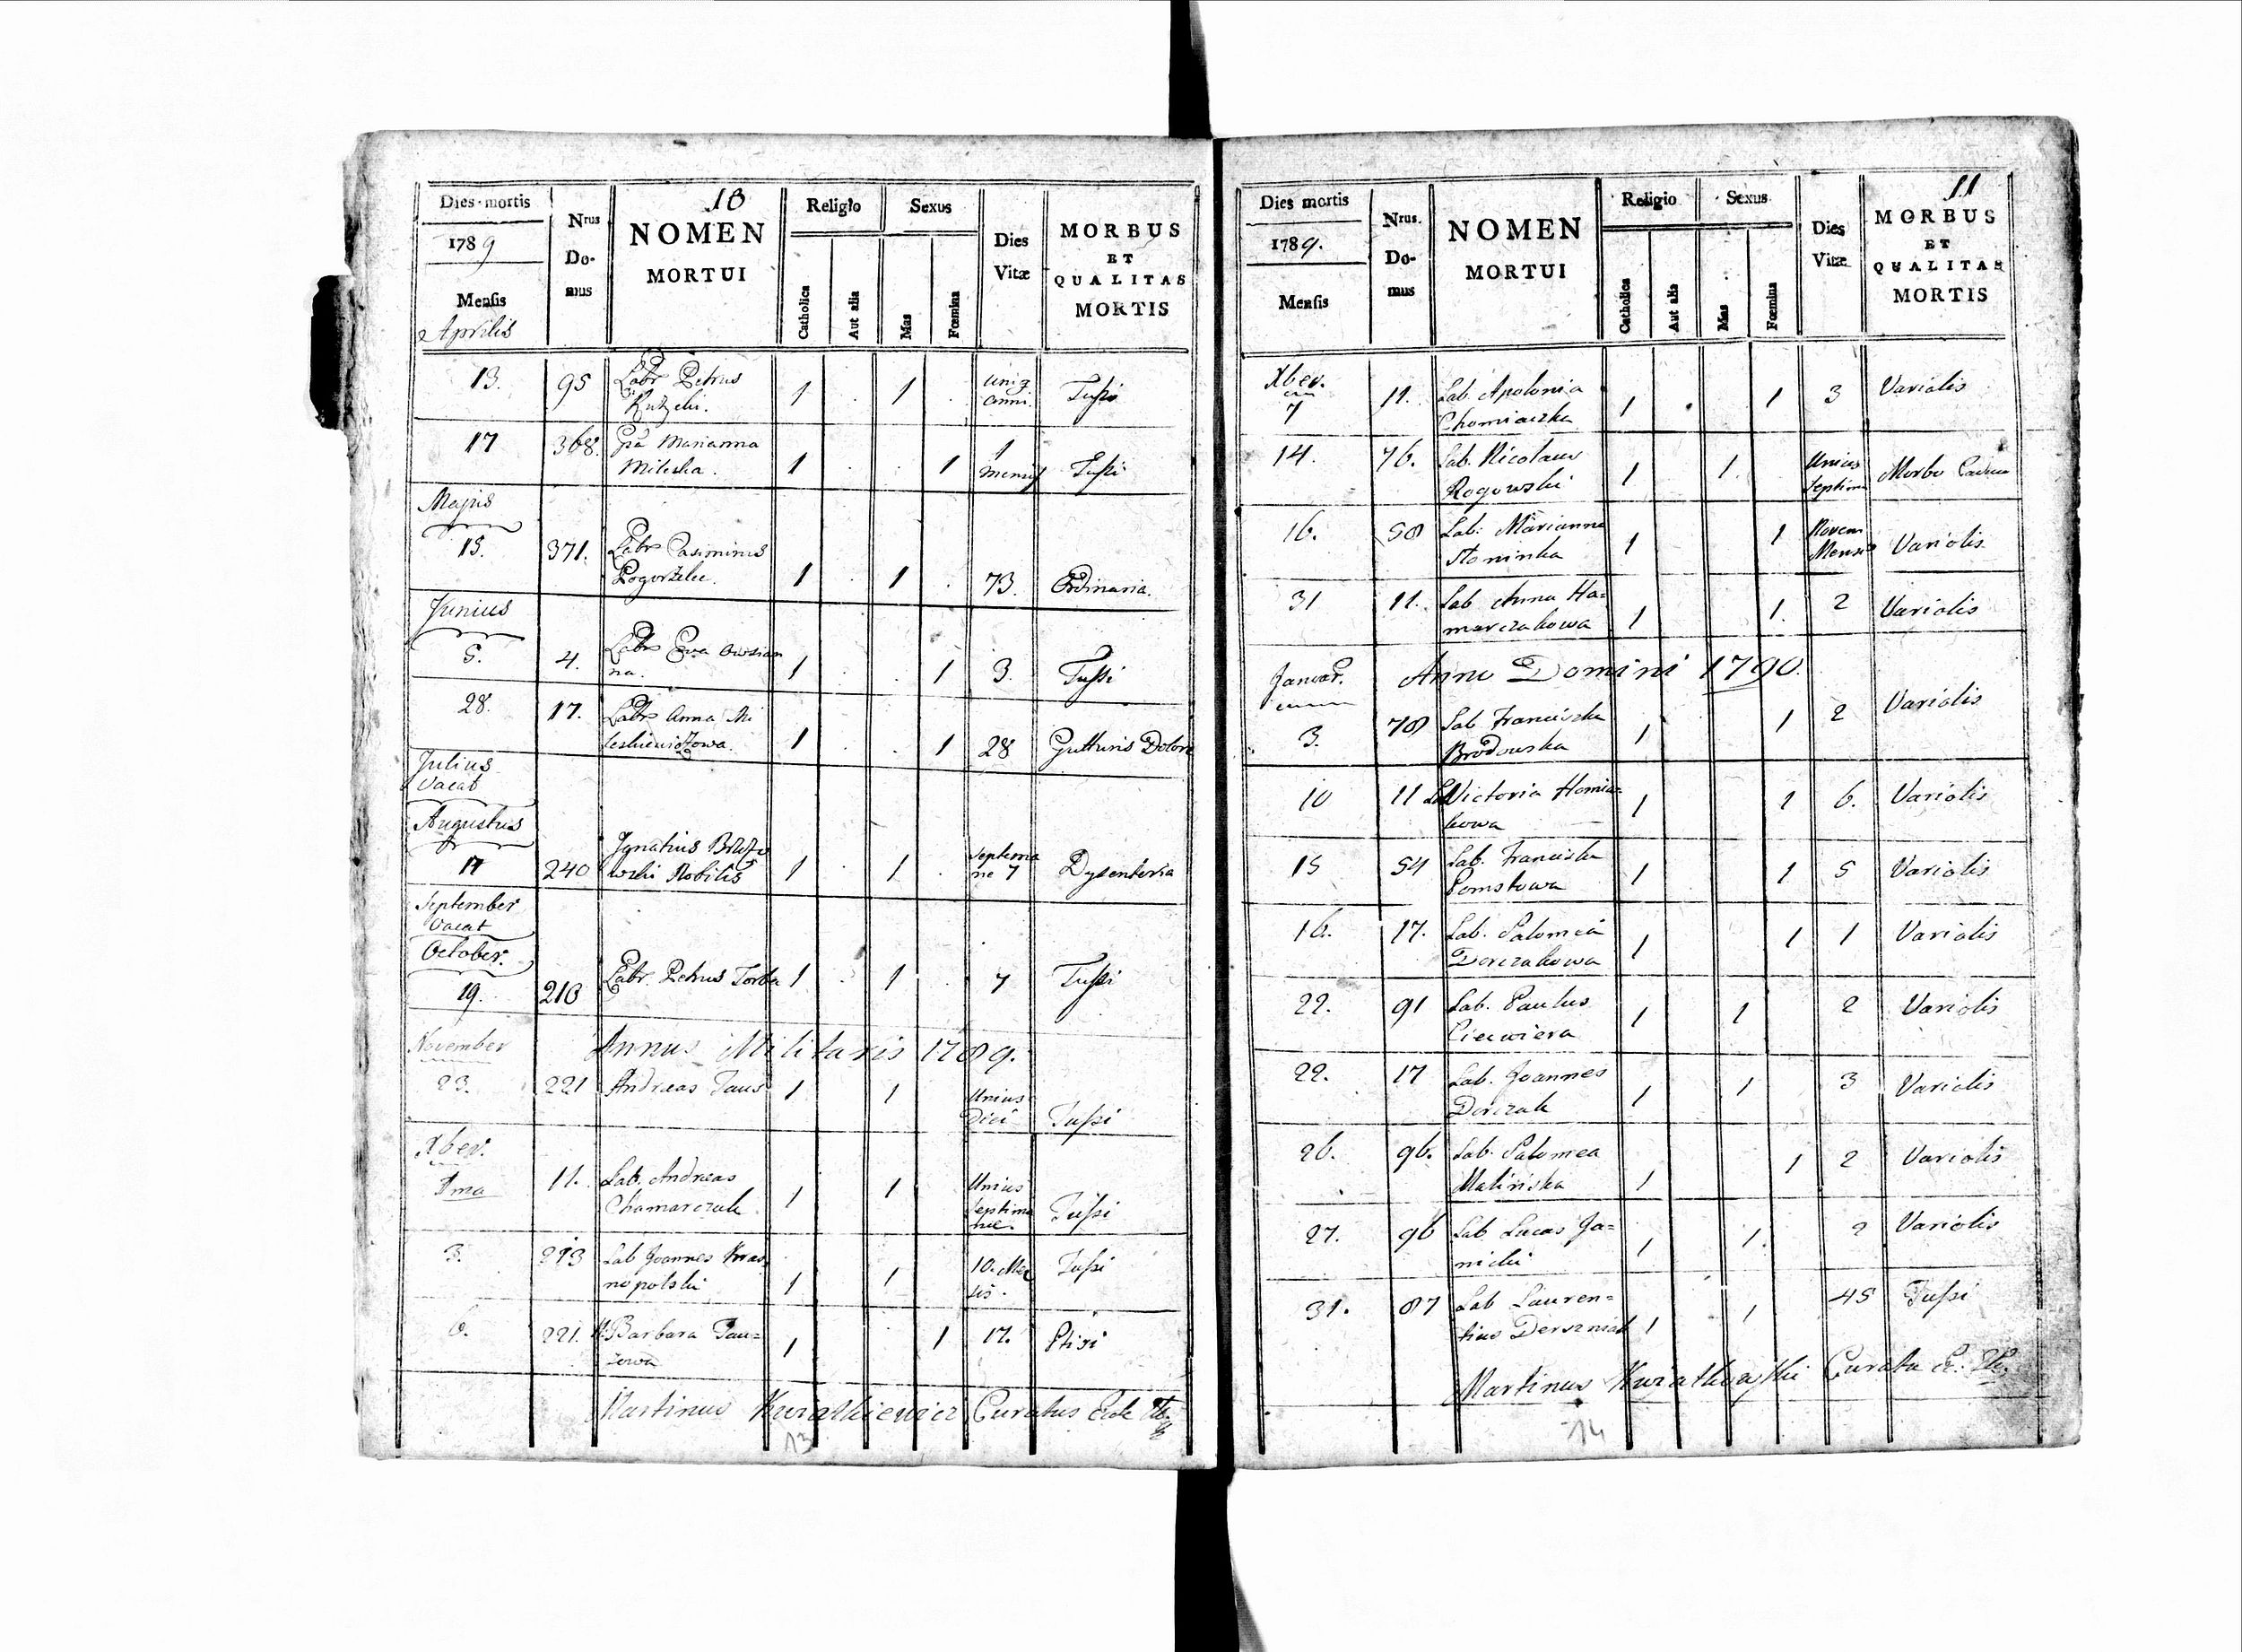 Dies mortis
1789
Mensis
Aprilis
Nrus Do- mus
10
NOMEN
MORTUI
Religio
Catholica
Aut alia
Sexus
Mas
Fœmina
Dies
Vitæ
MORBUS
ET
QUALITAS
MORTIS
13. 95 Labr Petrus 1 1 anni Tussi
17 368. Marianna
Mileska. 1 1 1 Mensis Tussi
Majus
15. 371. Labr Casimirus
1 1 73. Ordinaria.
Junius
5. 4. Labr Eva Owsian
na. 1 1 3. Tussi
28. 17. Labr Anna Mi
1 1 28 Gutturis Dolore
Julius
Vacat
Augustus
17 240 Ignatius
wski Nobilis 1 1 Septima
ne 7 Dysenteria
September
Vacat
October.
19. 210 Labr. Petrus Torba 1 1 7 Tussi
November Annus Militaris 1789.
23. 221 Andreas Taus 1 1 Unius
Diei Tussi
Xber.
1ma 11. Lab. Andreas
Chamarczuk 1 1 Unius
Septima
nae. Tussi
3. 213 Lab Joannes Kras
nopolski 1 1 10. Men
sis. Tussi
6. 221. Barbara Tau=
zowa 1 1 17. Ptisi
Martinus Kwiatkiewicz Curatus
13
Dies mortis
1789.
Mensis
Nrus. Do- mus
NOMEN
MORTUI
Religio
Catholica
Aut alia
Sexus
Mas
Fœmina
Dies
Vitæ
11
MORBUS
ET
QUALITAS
MORTIS
Xber.
7 11. Lab. Apolonia
Chomiaczka 1 1 3 Variolis
14. 76. Lab. Nicolaus
Rogowski 1 1. Unius
Septima Morbo
16. 58 Lab: Marianna
Sloninka 1 1 Novem
Mensis Variolis
31 11. Lab Anna Ha=
marczakowa 1 1. 2 Variolis
Januar. Anno Domini 1790.
3. 78 Lab Franciszka
Brodowska 1 1 2 Variolis
10 11 Lab Victoria Homia=
kowa 1 1 6. Variolis
15 54 Lab. Franciska
Pomstowa 1 1 5 Variolis
16. 17. Lab. Salomea
Derczakowa 1 1 1 Variolis
22. 91 Lab. Paulus
1 1 2 Variolis
22. 17 Lab. Joannes
Derczak 1 1 3 Variolis
26. 96. Lab. Salomea
Malinska 1 1 2 Variolis
27. 96 Lab Lucas Ja=
nicki 1 1. 2 Variolis
31. 87 Lab Lauren=
tius Derszniak 1 1 45 Tussi
Martinus Curatus
14